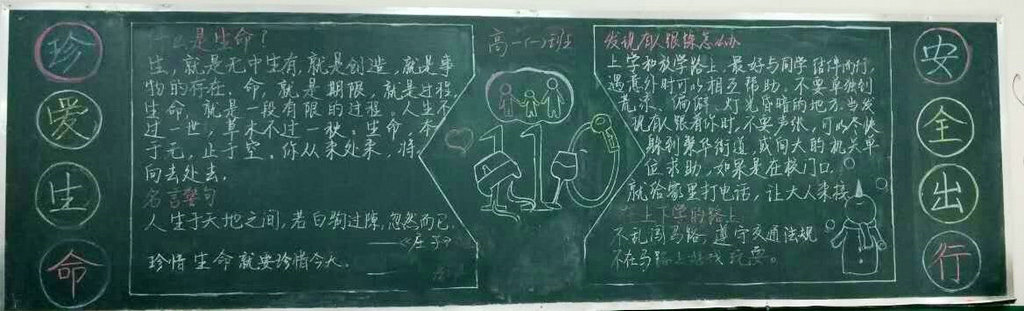 珍爱生命
什么是生命？
生，就是无中生有，就是创造，就是事
物的存在。命，就是期限，就是过程。
生命，就是一段有限的过程。人生不
过一世，草木不过一秋。生命，
于无，止于空。你从来处来，将
向去处去。
名言警句
人生于天地之间，若白驹过隙，忽然而已。
珍惜生命就要珍惜今天。
高一(一)班
110
发现有人跟踪怎么办
上学和放学路上，最好与同学结伴而行，
遇意外时可以相互帮助。不要单独到
荒凉、偏僻、灯光昏暗的地方。当发
现有人跟着你时，不要声张，可以尽快
躲到繁华街道，或向大的机关单
位求助，如果是在校门口，
就给家里打电话，让大人来接。
在上下学的路上
不乱闯马路，遵守交通法规
不在马路上游戏玩耍。
安全出行